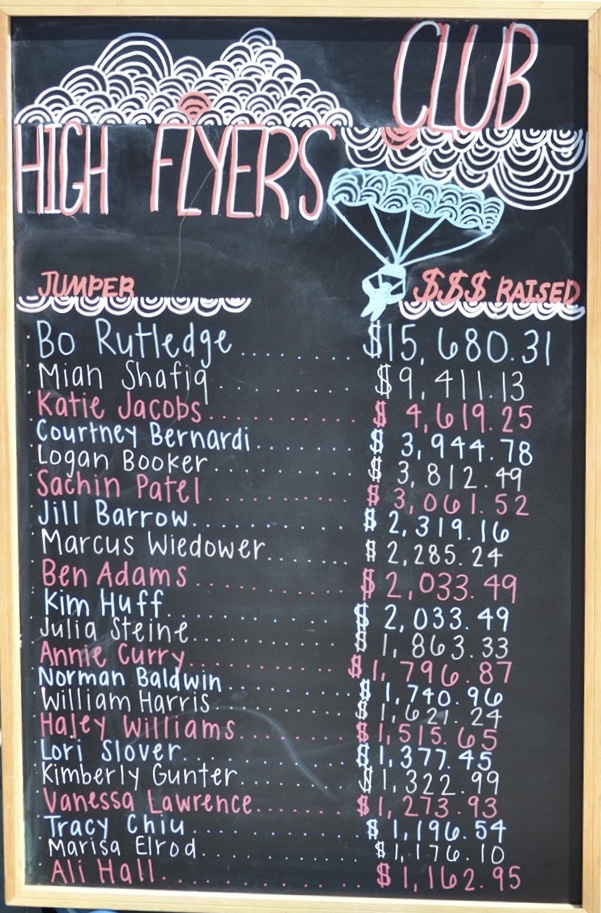 CLUB
HIGH FLYERS
JUMPER $$$ RAISED
Bo Rutledge.......... $15,680.31
Mian Shafiq............ $9,411.13
Katie Jacobs............ $4,619.25
Courtney Bernardi.......... $3,944.78
Logan Booker............ $3,812.49
Sachin Patel............ $3,061.52
Jill Barrow............ $2,319.16
Marcus Wiedower........ $2,285.24
Ben Adams............ $2,033.49
Kim Huff.............. $2,033.49
Julia Steine............ $1,863.33
Annie Curry............ $1,796.87
Norman Baldwin.......... $1,740.96
William Harris............ $1,621.24
Haley Williams.......... $1,515.65
Lori Slover............ $1,377.45
Kimberly Gunter.......... $1,322.99
Vanessa Lawrence........ $1,273.93
Tracy Chiu............ $1,196.54
Marisa Elrod............ $1,176.10
Ali Hall.............. $1,162.95